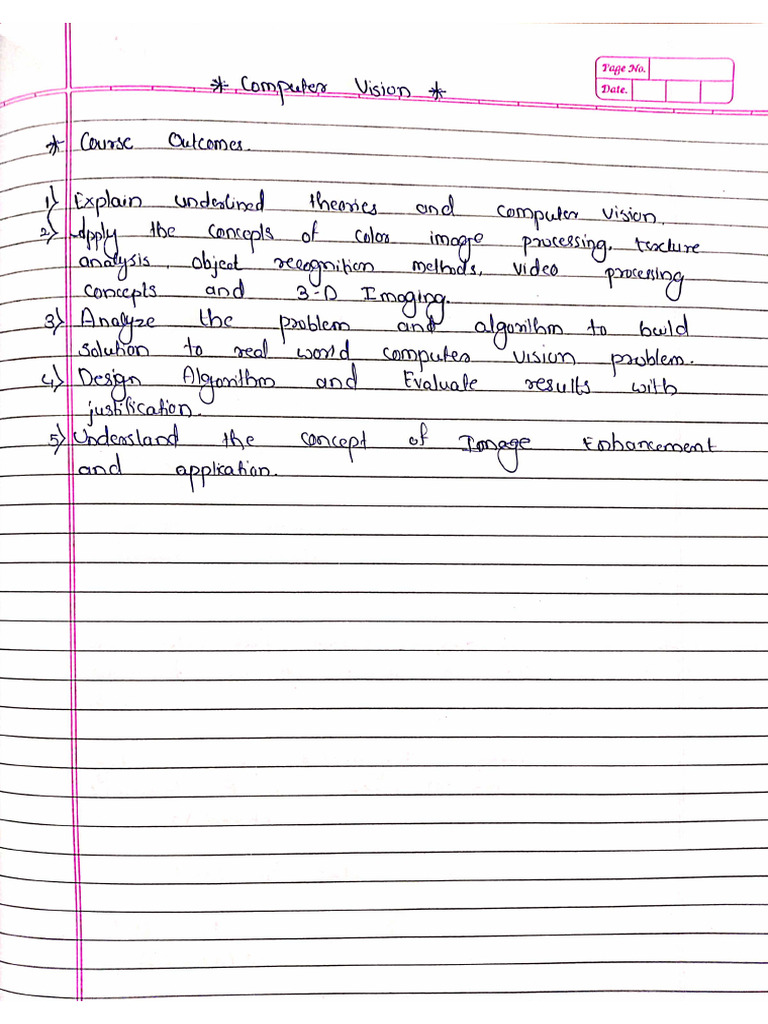 * Computer Vision *
Page No.
Date.
* Course Outcomes.
1) Explain underlined theories and computer vision.
2) Apply the concepts of color image processing, texture
analysis, object recognition methods, video processing
concepts and 3-D Imaging.
3) Analyze the problem and algorithm to build
solution to real world computer vision problem.
4) Design Algorithm and Evaluate results with
justification.
5) Understand the concept of Image Enhancement
and application.